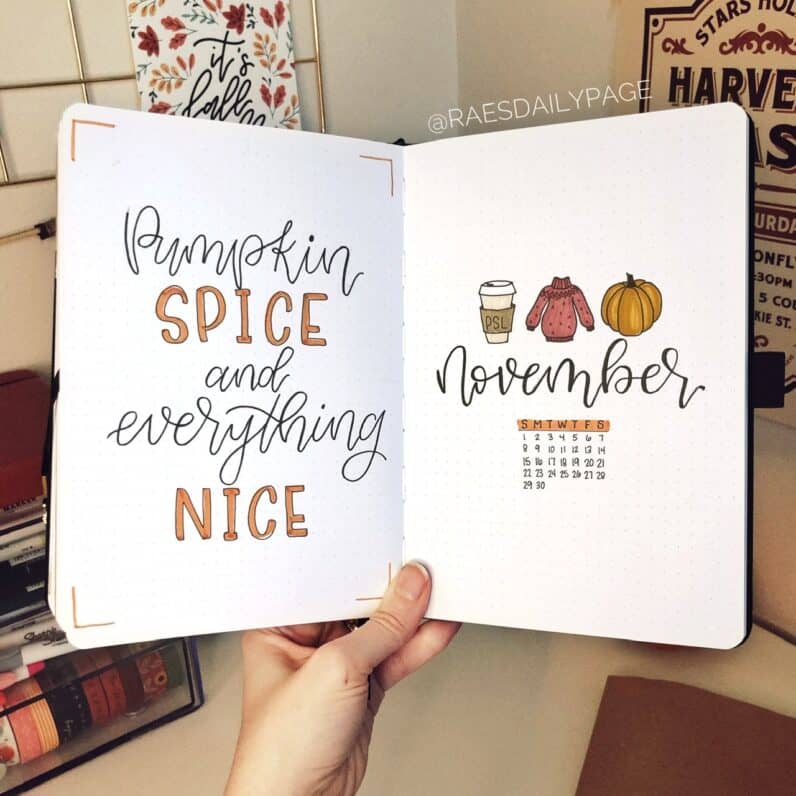 it's
fall
@RAESDAILYPAGE
STARS
HARVE
Pumpkin
SPICE
and
everything
NICE
PSL
november
S M T W T F S
1 2 3 4 5 6 7
8 9 10 11 12 13 14
15 16 17 18 19 20 21
22 23 24 25 26 27 28
29 30
URDA
ONFLY
:30PM
5 COU
KIE ST.
Sharpie